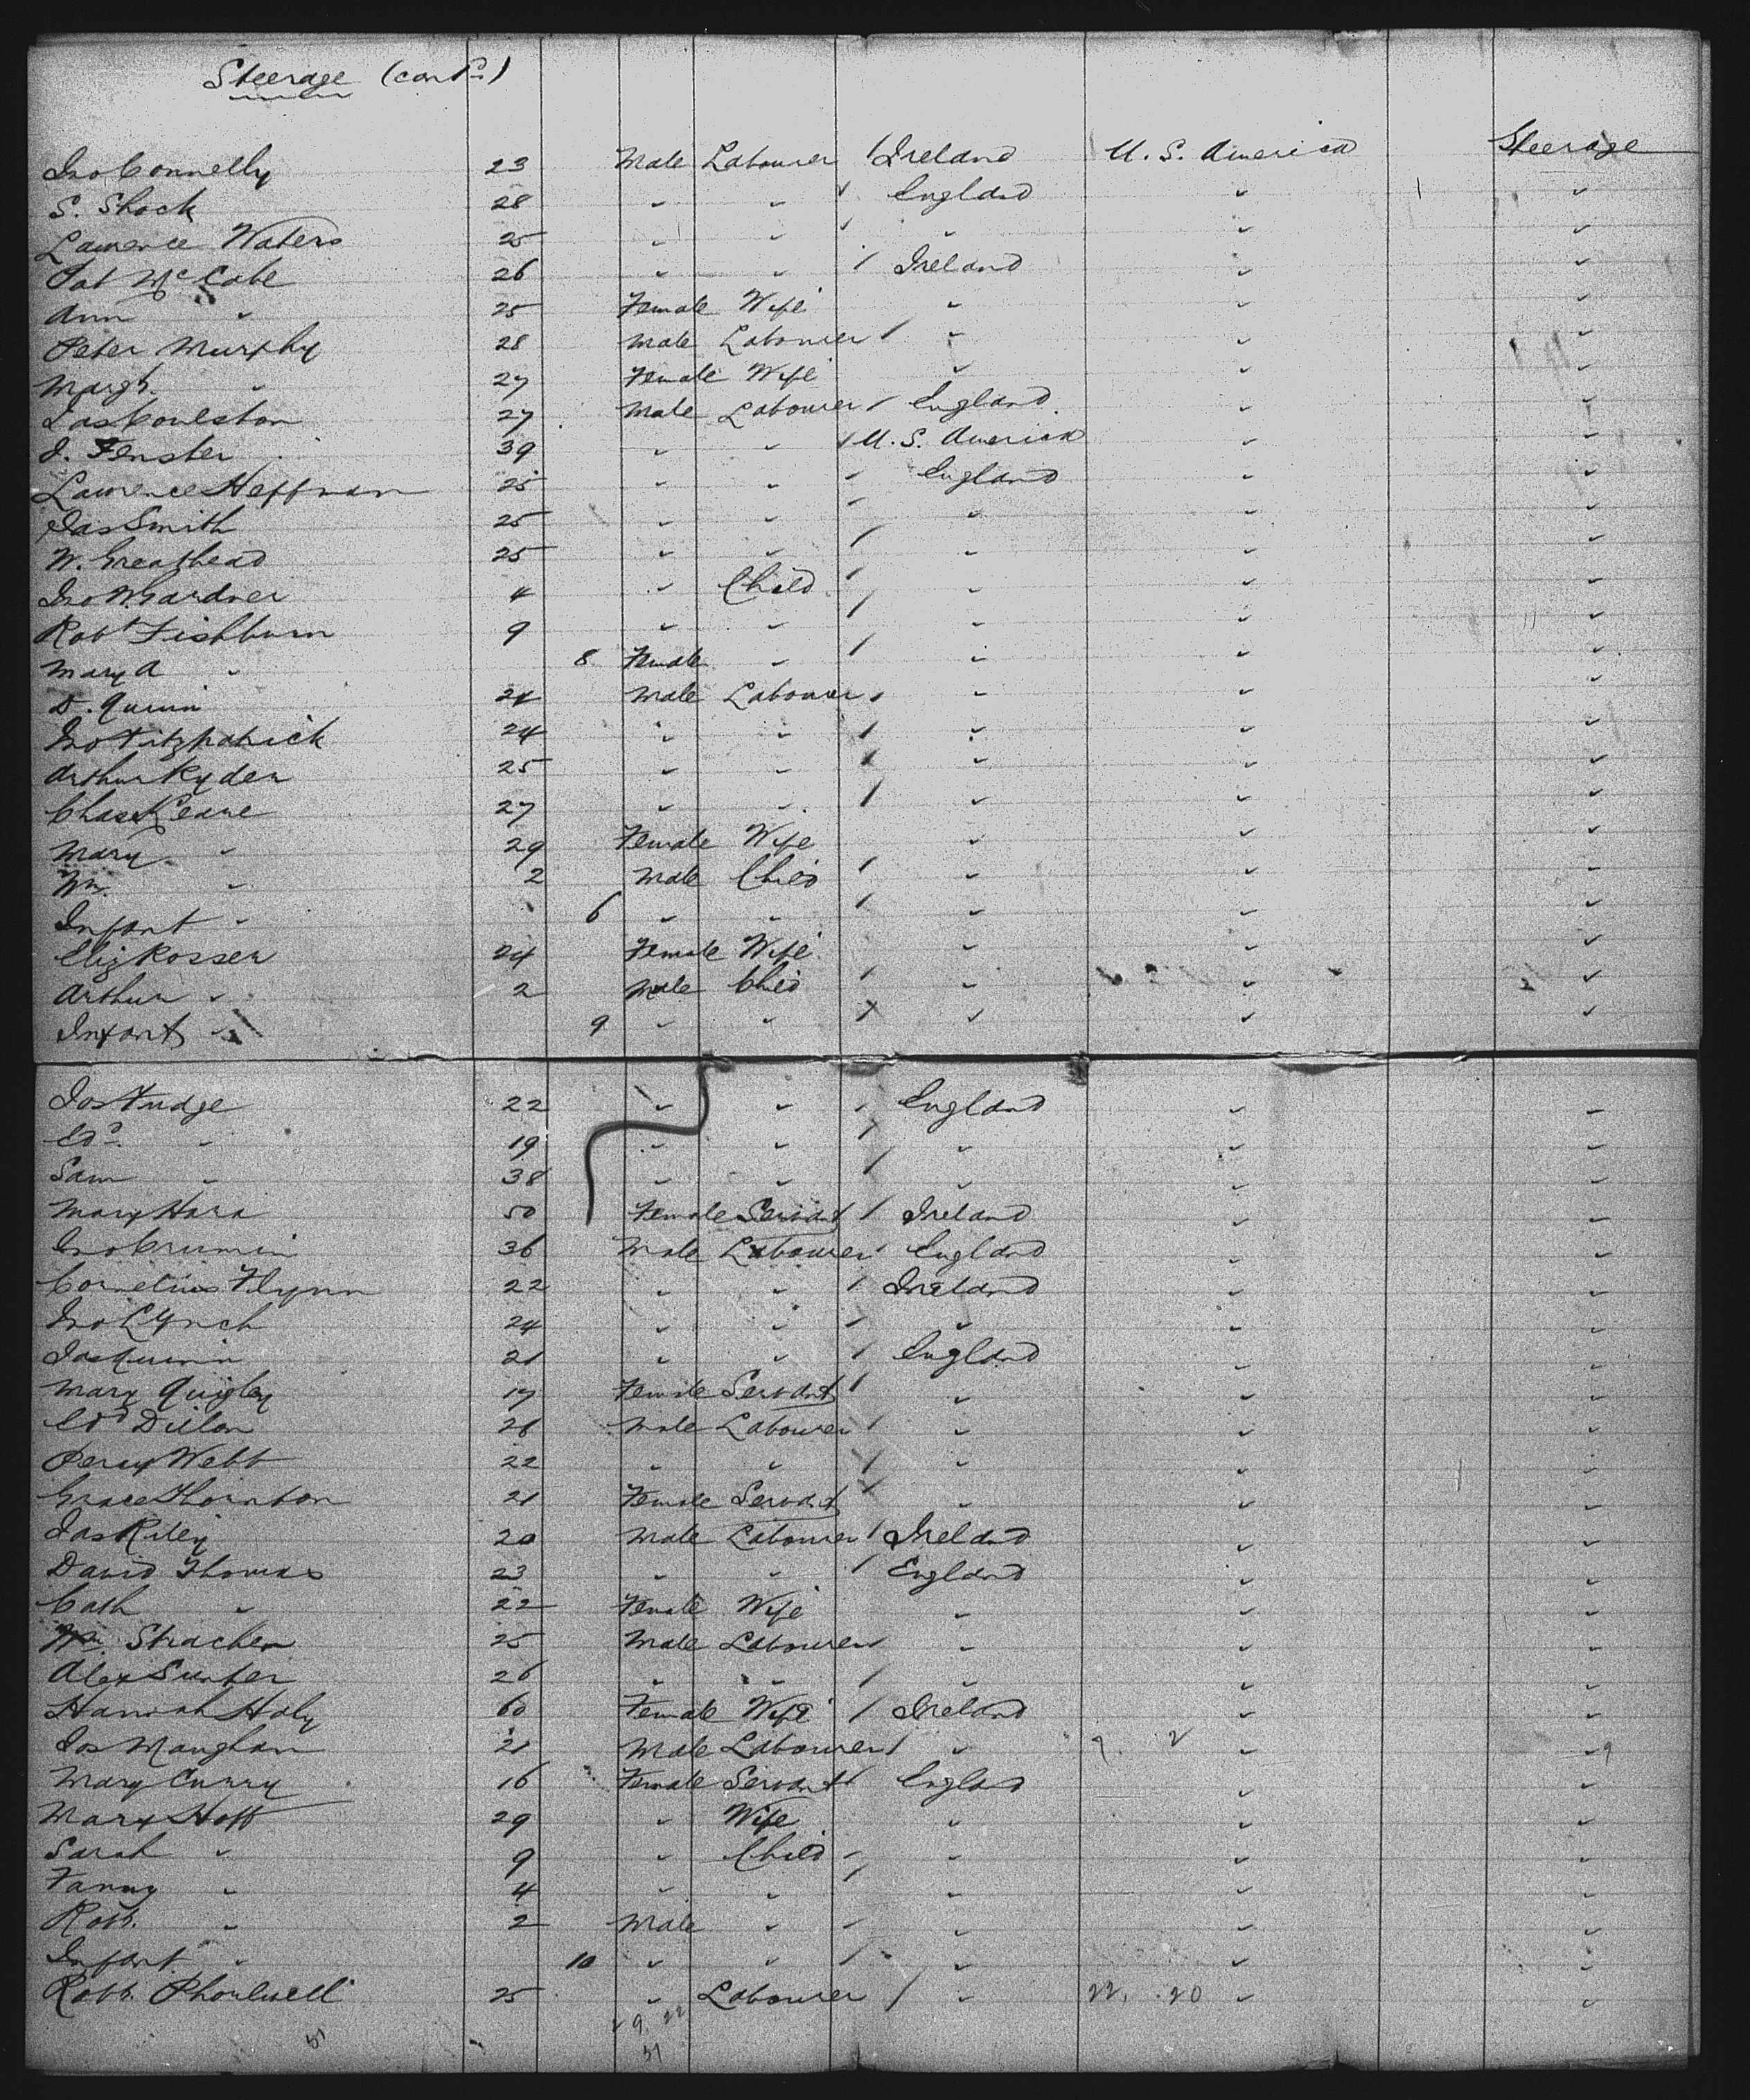 Steerage (cont.)
Jno Connelly 23 Male Labourer / Ireland U. S. America Steerage
S. Shock 28 " " England " "
Lawrence Waters 25 " " " " "
Pat McCabe 26 " " / Ireland " "
Ann " 25 Female Wife " " "
Peter Murphy 28 Male Labourer / " " "
Margt. " 27 Female Wife " " "
Jas Coulston 27 Male Labourer / England " "
J. Fenster 39 " " / U. S. America " "
Lawrence Heffnan 25 " " England " "
Jas Smith 25 " " / " " "
W. Greathead 25 " " / " " "
Jno W. Gardner 4 " Child / " " "
Robt Fishburn 9 " " / " " "
Mary A " 8 Female " / " " "
D. Quinn 24 Male Labourer / " " "
Jno Fitzpatrick 24 " " / " " "
Arthur Ryder 25 " " / " " "
Chas Keane 27 " " / " " "
Mary " 29 Female Wife " " "
Wm. " 2 Male Child / " " "
Infant " 6 " " / " " "
Eliz Rosser 24 Female Wife " " "
Arthur " 2 Male Child / " " "
Infant " 9 " " / " " "
Jos Fudge 22 " " / England " "
Edd. " 19 " " / " " "
Sam " 38 " " / " " "
Mary Hara 50 Female Servant / Ireland " "
Jno Crumin 36 Male Labourer / England " "
Cornelius Flynn 22 " " / Ireland " "
Jno Lynch 24 " " / " " "
Jas Quinn 21 " " / England " "
Mary Quigley 17 Female Servant / " " "
Edd Dillon 26 Male Labourer / " " "
Percy Webb 22 " " / " " "
Grace Thornton 21 Female Servant / " " "
Jas Riley 20 Male Labourer / Ireland " "
David Thomas 23 " " / England " "
Cath " 22 Female Wife " " "
Wm Strachen 25 Male Labourer / " " "
Alex Sunter 26 " " / " " "
Hannah Haly 60 Female Wife / Ireland " "
Jos Maughan 21 Male Labourer / " " "
Mary Curry 16 Female Servant / England " "
Mary Hoff 29 " Wife " " "
Sarah " 9 " Child / " " "
Fanny " 4 " " / " " "
Robt. " 2 Male " / " " "
Infant " 10 " " / " " "
Robt. 25 " Labourer / " 22. 20 " "
9. 22
51 51